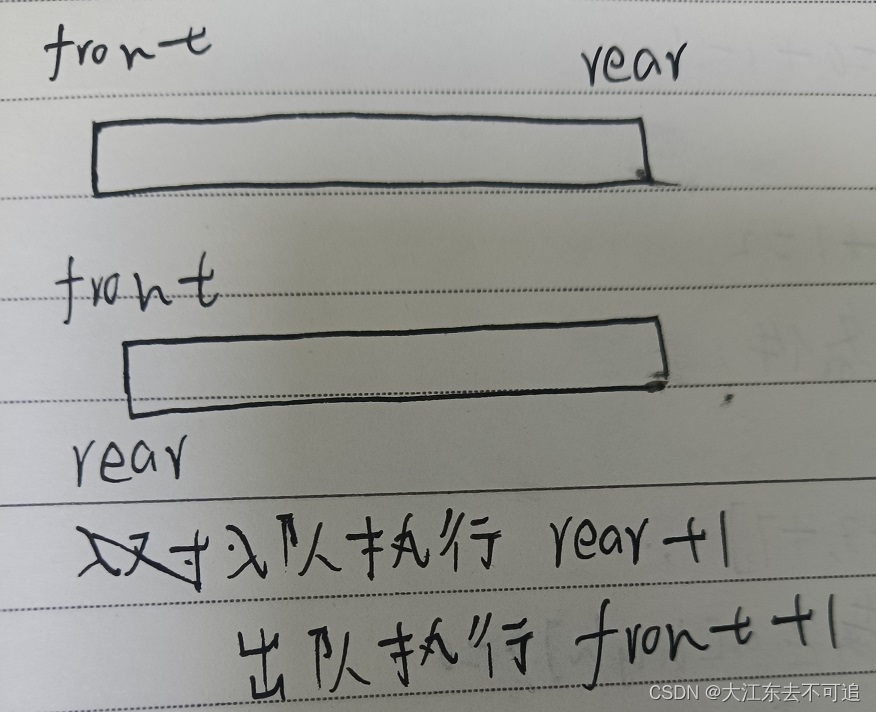 front
rear
front
rear
入队执行 rear +1
出队执行 front +1
CSDN @大江东去不可追